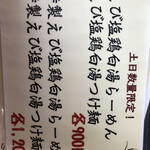 土日数量限定！
えび塩鶏白湯らーめん
えび塩鶏白湯つけ麺
各900
製えび塩鶏白湯らーめん
製えび塩鶏白湯つけ麺
各1,20